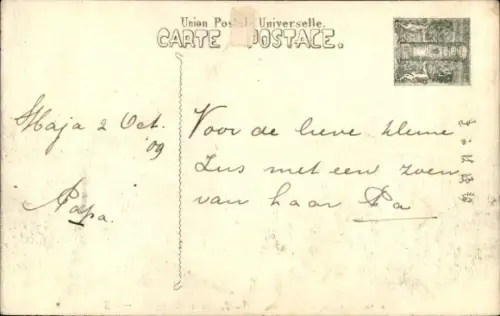 Union Postale Universelle.
CARTE POSTALE.
Maja 2 Oct.
09
Papa.
Voor de lieve kleine
Zus met een zoen
van haar Pa